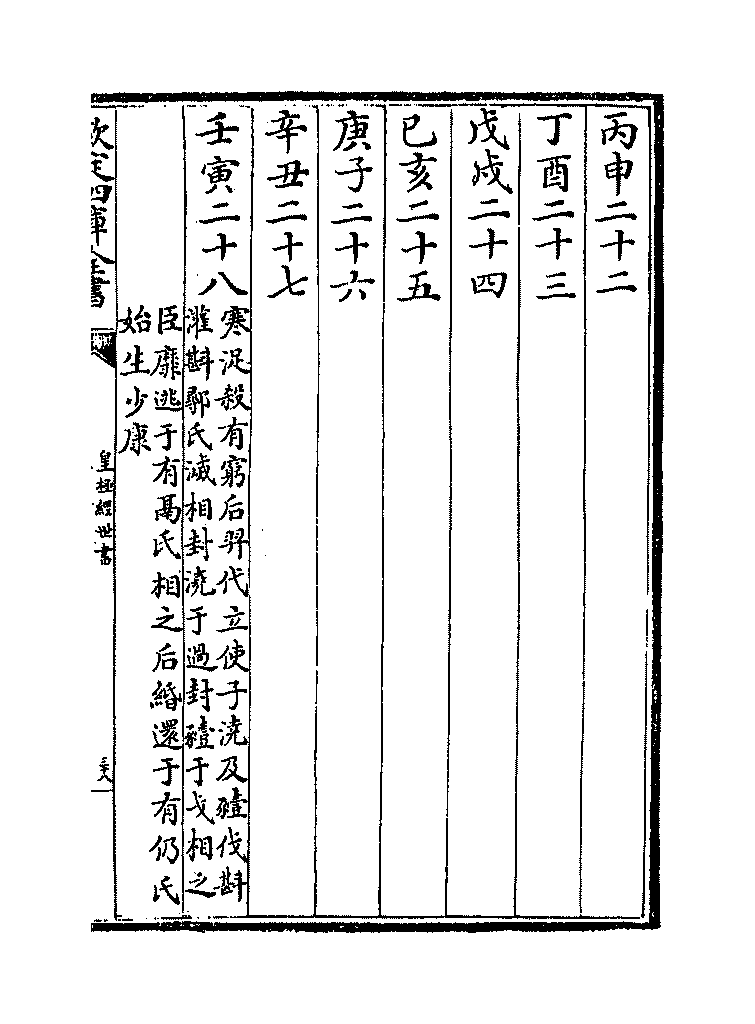 丙申二十二
丁酉二十三
戊戌二十四
己亥二十五
庚子二十六
辛丑二十七
壬寅二十八
寒浞殺有窮后羿代立使子澆及豷伐斟
灌斟鄩氏滅相封澆于過封豷于戈相之
臣靡逃于有鬲氏相之后緡還于有仍氏
始生少康
欽定四庫全書
皇極經世書
三十八